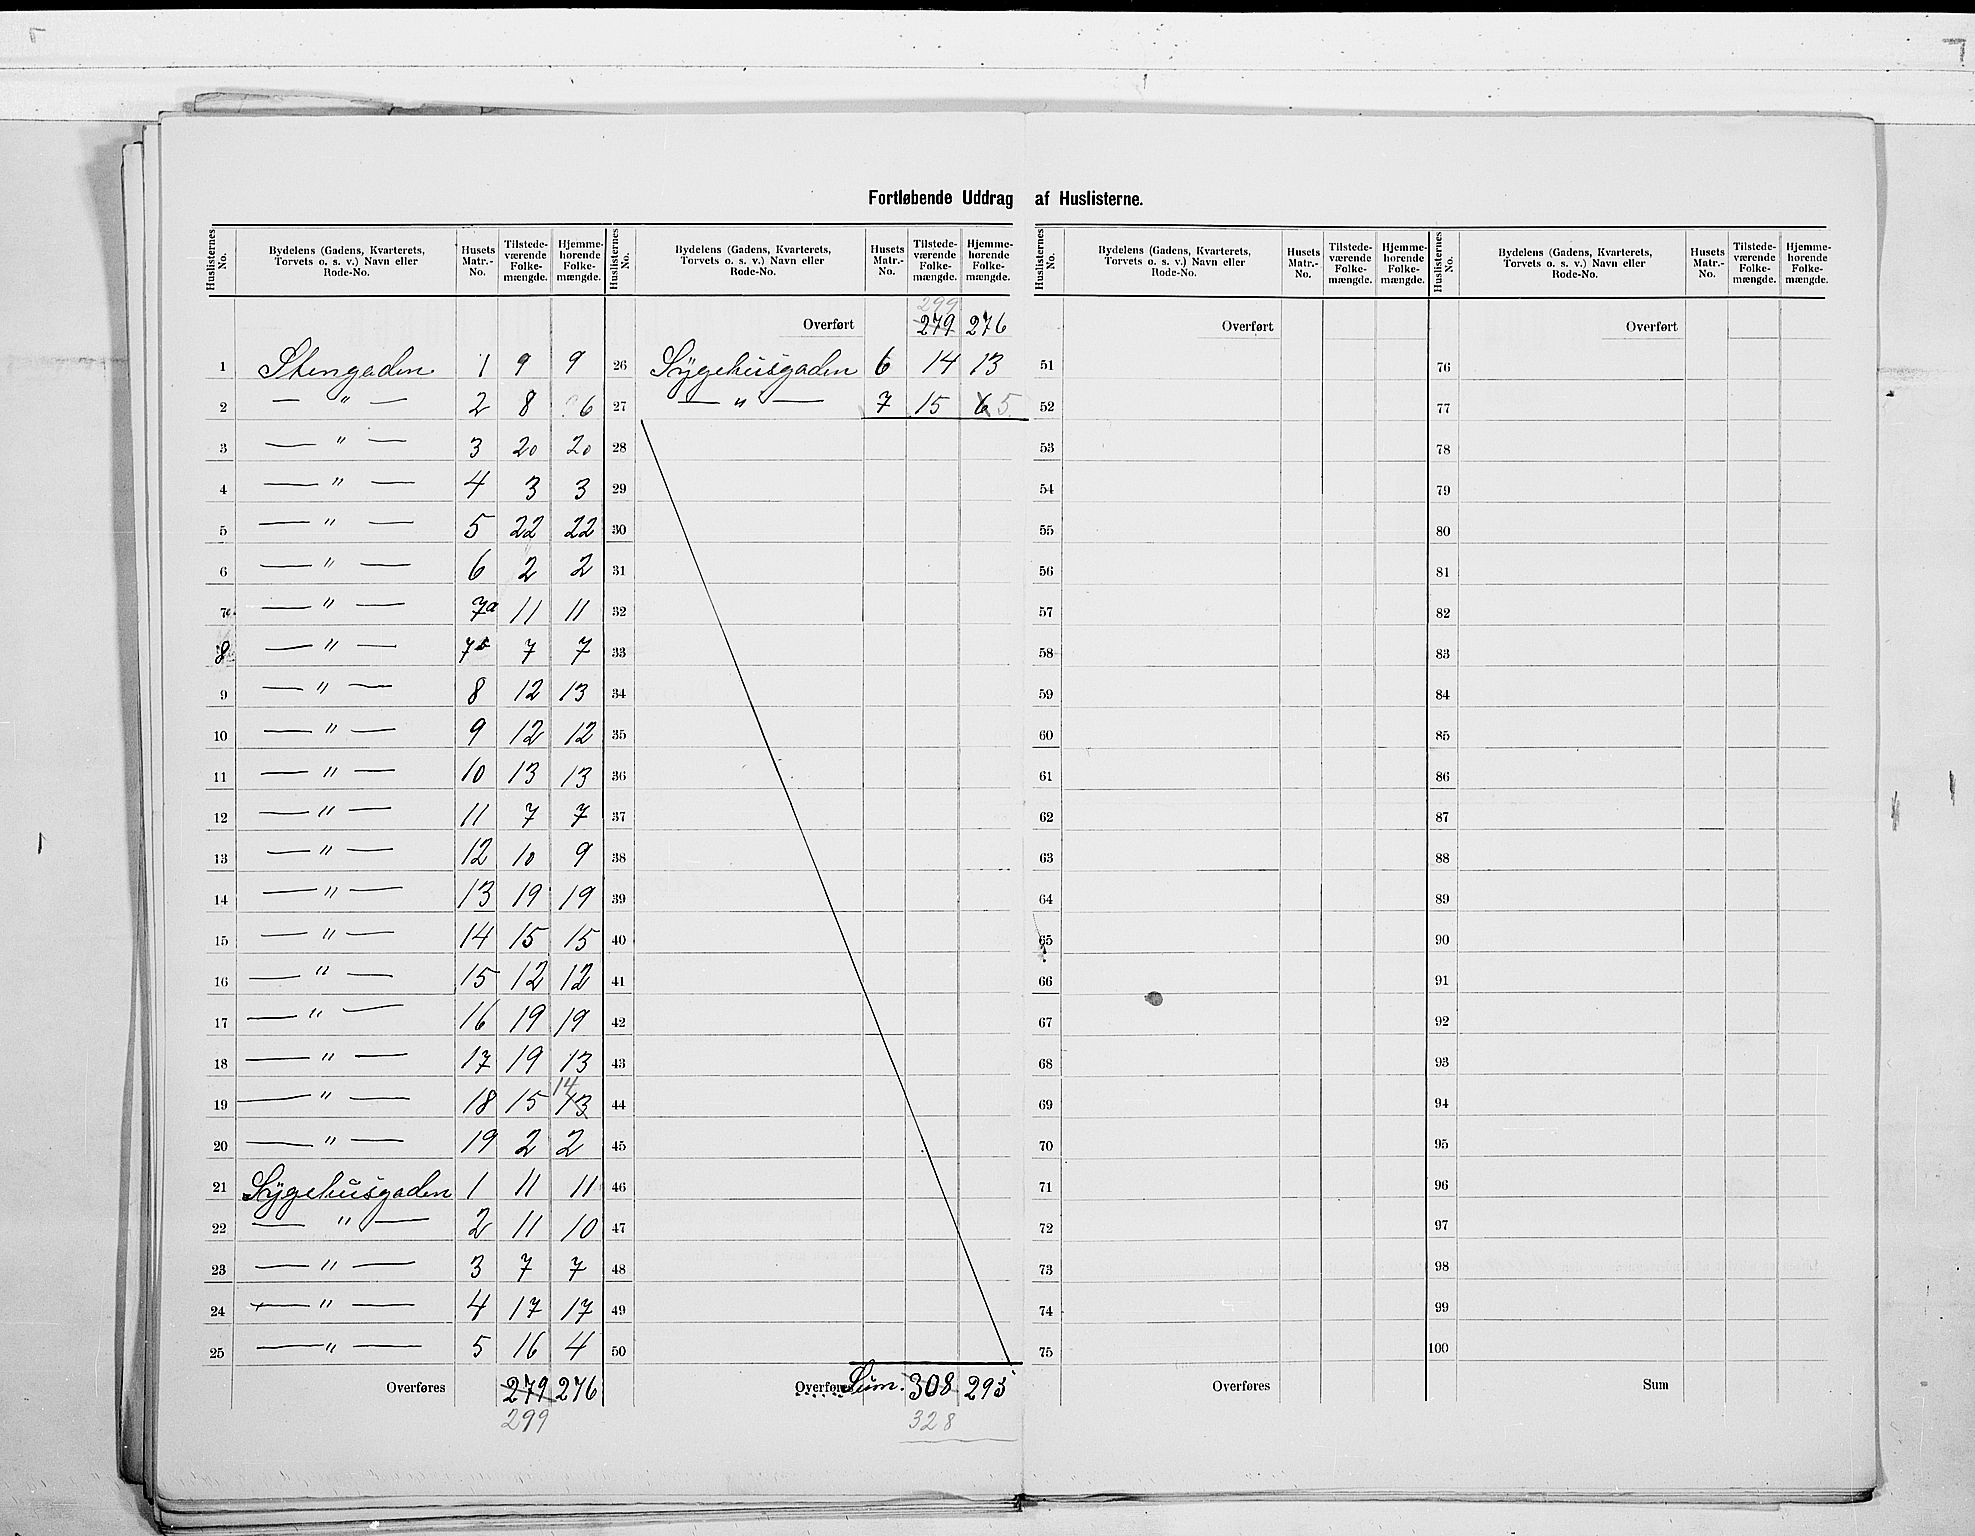 Fortløbende Uddrag af Huslisterne.
Huslisternes No. Bydelens (Gadens, Kvarterets, Torvets o. s. v.) Navn eller Rode-No. Husets Matr.-No. Tilstedeværende Folkemængde. Hjemmehørende Folkemængde. Huslisternes No. Bydelens (Gadens, Kvarterets, Torvets o. s. v.) Navn eller Rode-No. Husets Matr.-No. Tilstedeværende Folkemængde. Hjemmehørende Folkemængde. Huslisternes No. Bydelens (Gadens, Kvarterets, Torvets o. s. v.) Navn eller Rode-No. Husets Matr.-No. Tilstedeværende Folkemængde. Hjemmehørende Folkemængde. Huslisternes No. Bydelens (Gadens, Kvarterets, Torvets o. s. v.) Navn eller Rode-No. Husets Matr.-No. Tilstedeværende Folkemængde. Hjemmehørende Folkemængde.
299
Overført 279 276 Overført Overført
1 Stengaden 1 9 9 26 Sygehusgaden 6 14 13 51 76
2 — " — 2 8 6 27 — " — 7 15 6 5 52 77
3 — " — 3 20 20 28 53 78
4 — " — 4 3 3 29 54 79
5 — " — 5 22 22 30 55 80
6 — " — 6 2 2 31 56 81
7 — " — 7a 11 11 32 57 82
8 — " — 7b 7 7 33 58 83
9 — " — 8 12 13 34 59 84
10 — " — 9 12 12 35 60 85
11 — " — 10 13 13 36 61 86
12 — " — 11 7 7 37 62 87
13 — " — 12 10 9 38 63 88
14 — " — 13 19 19 39 64 89
15 — " — 14 15 15 40 65 90
16 — " — 15 12 12 41 66 91
17 — " — 16 19 19 42 67 92
18 — " — 17 19 13 43 68 93
14
19 — " — 18 15 13 44 69 94
20 — " — 19 2 2 45 70 95
21 Sygehusgaden 1 11 11 46 71 96
22 — " — 2 11 10 47 72 97
23 — " — 3 7 7 48 73 98
24 — " — 4 17 17 49 74 99
25 — " — 5 16 4 50 75 100
Overføres 279 276 Overføres Sum. 308 295 Overføres Sum
299 328